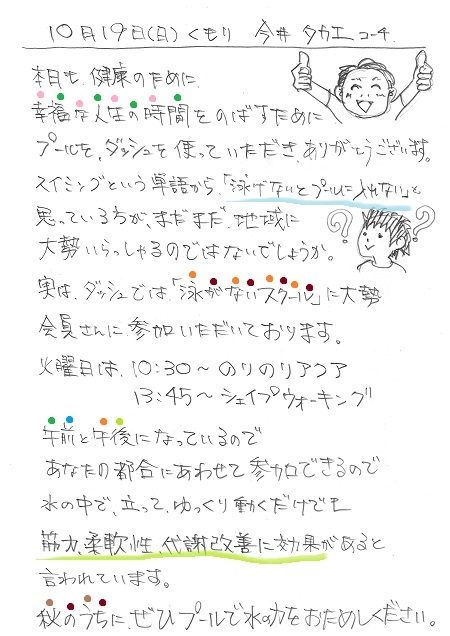 10月19日(日)くもり 今井 タカエコーチ
本日も、健康のために、
幸福な人生の時間をのばすために
プールを、ダッシュを使っていただき、ありがとうございます。
スイミングという単語から、「泳げないとプールに入れない」と
思っている方が、まだまだ、地域に
大勢いらっしゃるのではないでしょうか。
実は、ダッシュでは「泳がないスクール」に大勢
会員さんに参加いただいております。
火曜日は、10:30～ のりのりアクア
13:45～ シェイプウォーキング
午前と午後になっているので
あなたの都合にあわせて参加できるので
水の中で、立って、ゆっくり動くだけでも
筋力、柔軟性、代謝改善に効果があると
言われています。
秋のうちに、ぜひプールで水の力をおためしください。
? ?